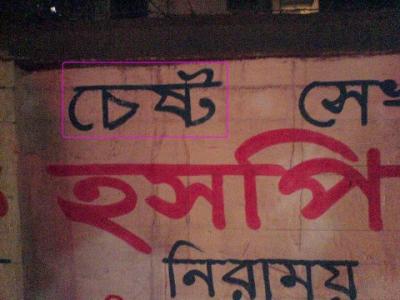 চেষ্ট সেন্
হসপি
নিরাময়